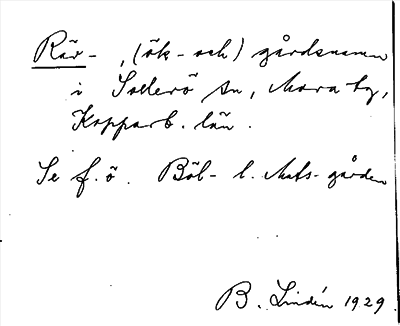 Rär-, (ök- och) gårdsnamn
i Sollerö sn, Mora tg,
Kopparb. län.
Se f. ö. Böl- l. Mats-gården
B. Lindén 1929.